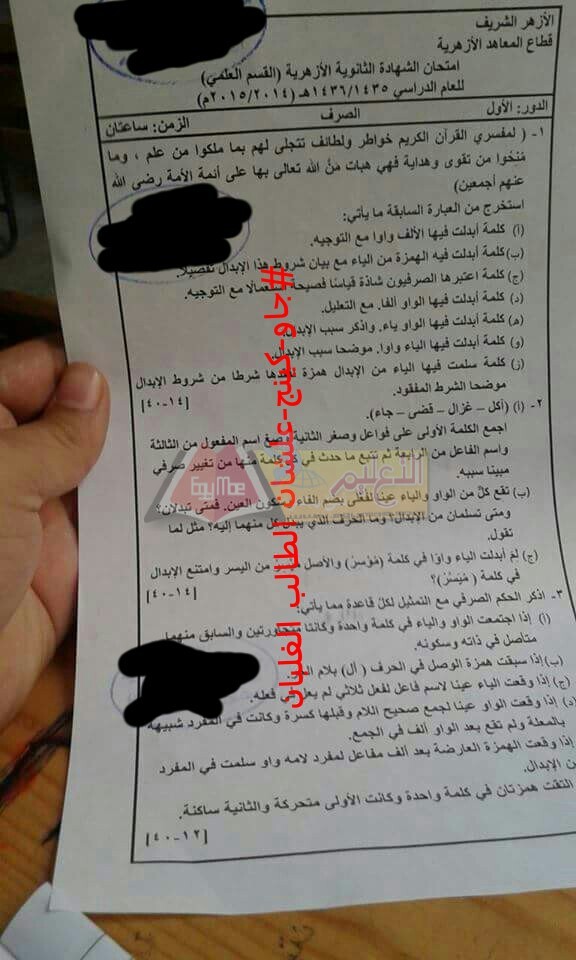 الأزهر الشريف
قطاع المعاهد الأزهرية
امتحان الشهادة الثانوية الأزهرية (القسم العلمي)
للعام الدراسي ١٤٣٦/١٤٣٥هـ (٢٠١٥/٢٠١٤م)
الدور: الأول الصرف الزمن: ساعتان
١- ( لمفسري القرآن الكريم خواطر ولطائف تتجلى لهم بما ملكوا من علم ، وما
مُنحُوا من تقوى وهداية فهي هبات مَنَّ الله تعالى بها على أئمة الأمة رضى الله
عنهم أجمعين)
استخرج من العبارة السابقة ما يأتي:
(أ) كلمة أبدلت فيها الألف واوا مع التوجيه.
(ب) كلمة أبدلت فيه الهمزة من الياء مع بيان شروط هذا الإبدال تفصيلا.
(ج) كلمة اعتبرها الصرفيون شاذة قياسًا فصيحة استعمالًا مع التوجيه.
(د) كلمة أبدلت فيها الواو ألفا. مع التعليل.
(هـ) كلمة أبدلت فيها الواو ياء. واذكر سبب الإبدال.
(و) كلمة أبدلت فيها الياء واوا. موضحا سبب الإبدال.
(ز) كلمة سلمت فيها الياء من الإبدال همزة لفقدها شرطا من شروط الإبدال
موضحا الشرط المفقود.
[١٤-٤٠]
٢- (أ) (أكل – غزال – قضى – جاء).
اجمع الكلمة الأولى على فواعل وصغر الثانية وصغ اسم المفعول من الثالثة
واسم الفاعل من الرابعة ثم تتبع ما حدث في كل كلمة منها من تغيير صرفي
مبينا سببه.
(ب) تقع كلٌ من الواو والياء عينا لفُعْلَى بضم الفاء وسكون العين. فمتى تبدلان؟
ومتى تسلمان من الإبدال؟ وما الحرف الذي يبدل كل منهما إليه؟ مثل لما
تقول.
(ج) لِمَ أبدلت الياء واوًا في كلمة (مُوْسِرْ) والأصل من اليسر وامتنع الإبدال
في كلمة (مُيَسَّرْ)؟
[١٤-٤٠]
٣- اذكر الحكم الصرفي مع التمثيل لكل قاعدة مما يأتي:
(أ) إذا اجتمعت الواو والياء في كلمة واحدة وكانتا متجاورتين والسابق منهما
متأصل في ذاته وسكونه.
(ب) إذا سبقت همزة الوصل في الحرف ( أل) بلام
(ج) إذا وقعت الياء عينا لاسم فاعل لفعل ثلاثي لم يعل في فعله.
(د) إذا وقعت الواو عينا لجمع صحيح اللام وقبلها كسرة وكانت في المفرد شبيهة
بالمعلة ولم تقع بعد الواو ألف في الجمع.
إذا وقعت الهمزة العارضة بعد ألف مفاعل لمفرد لامه واو سلمت في المفرد
من الإبدال.
التقت همزتان في كلمة واحدة وكانت الأولى متحركة والثانية ساكنة.
[١٢-٤٠]
#جاو-كينج-علشان الطالب الغلبان
التعليم
Egy Moe